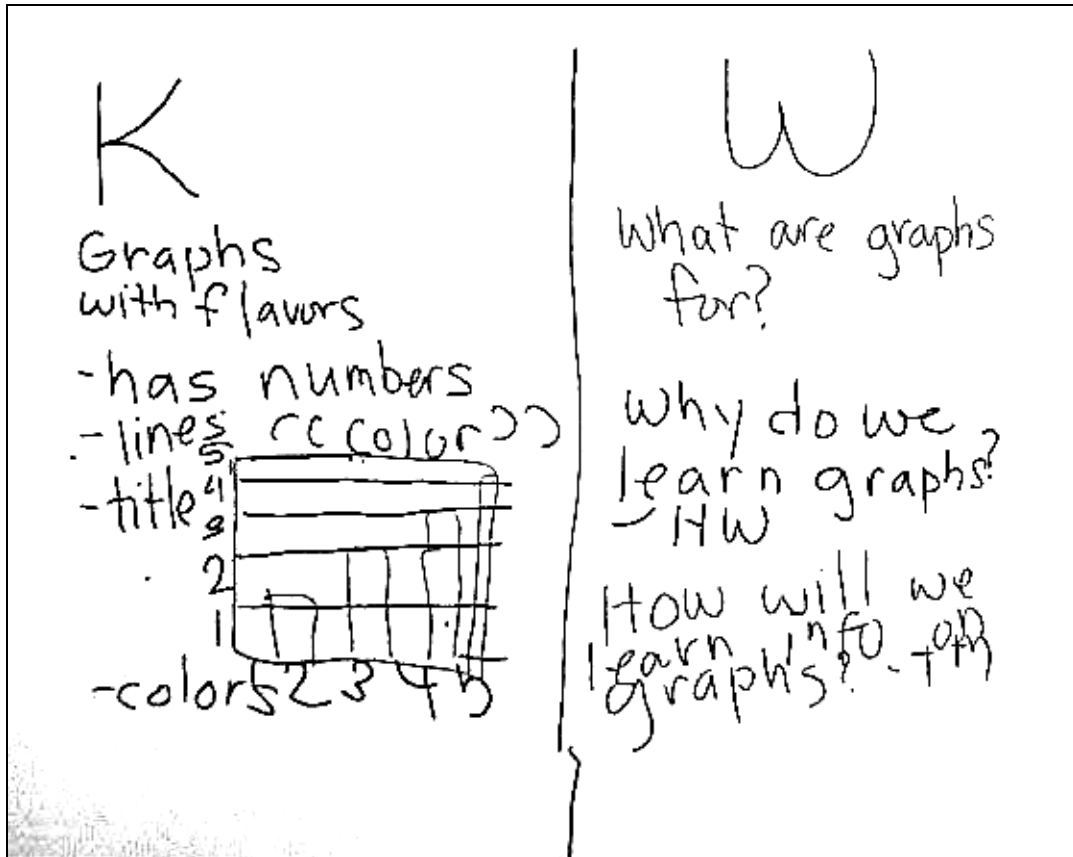 K
Graphs
with flavors
-has numbers
-lines "color"
-title
5
4
3
2
1
1 2 3 4 5
-colors
W
What are graphs
for?
Why do we
learn graphs?
- HW
How will we
learn info on
graphs?